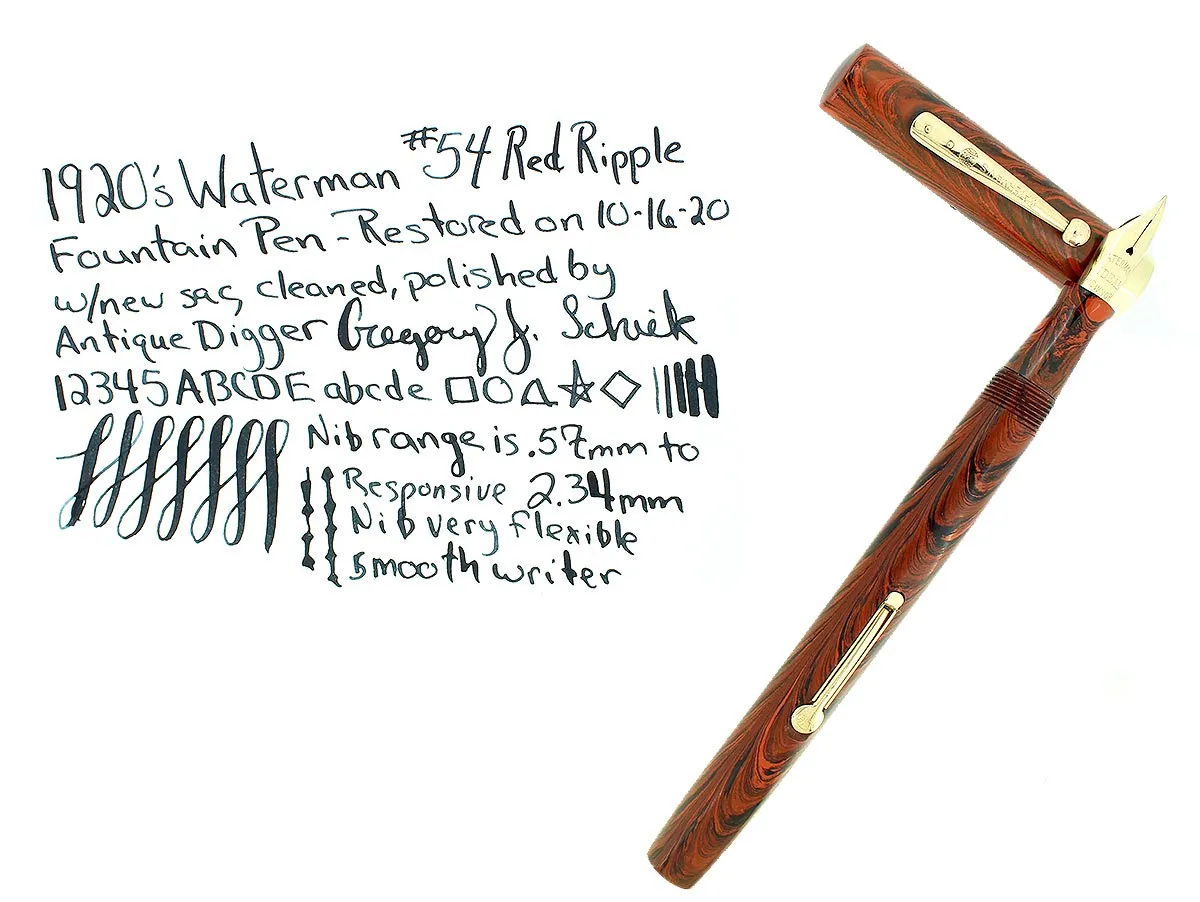 1920's Waterman #54 Red Ripple
Fountain Pen - Restored on 10-16-20
w/new sac, cleaned, polished by
Antique Digger Gregory J.
12345 ABCDE abcde
Nib range is .57mm to
Responsive 2.34mm
Nib very flexible
Smooth writer